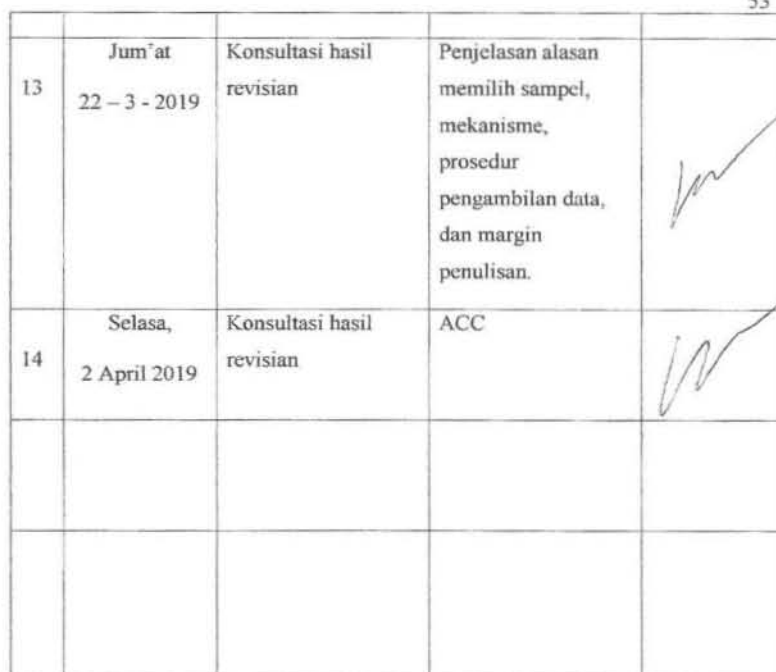 53
13
Jum'at
22 – 3 - 2019
Konsultasi hasil
revisian
Penjelasan alasan
memilih sampel,
mekanisme,
prosedur
pengambilan data,
dan margin
penulisan.
14
Selasa,
2 April 2019
Konsultasi hasil
revisian
ACC